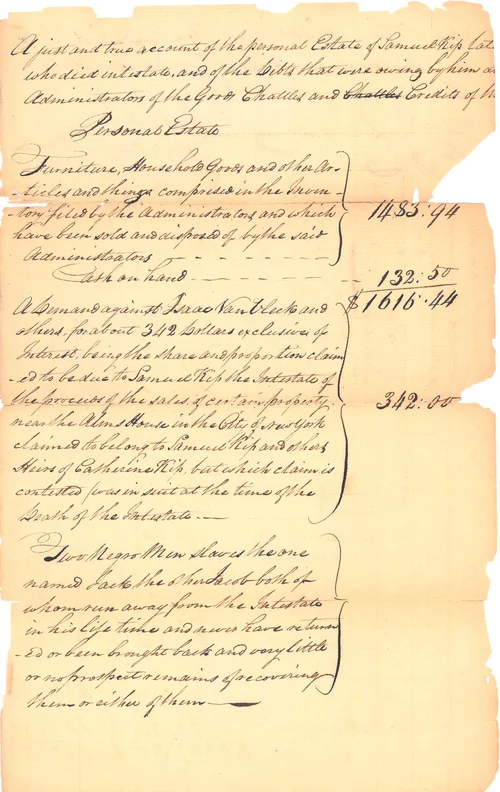 A just and true account of the personal Estate of Samuel Kip lat
who died intestate, and of the Debts that were owing by him a
Administrators of the Goods Chattles and Chattles Credits of
Personal Estate
Furniture, Household Goods and other Ar-
-ticles and things comprised in the Inven-
-tory filed by the Administrators and which
have been sold and disposed of by the said
Administrators 1483:94
Cash on hand 132:50
$1616.44
A Demand against Isaac Van Vleck and
others, for about 342 Dollars exclusive of
Interest, being the share and proportion claim
-ed to be due to Samuel Kip the Intestate of
the proceeds of the sales of certain property 342:00
near the Alms House in the City of New York
claimed to belong to Samuel Kip and others
Heirs of Catherine Kip, but which claim is
contested & was in suit at the time of the
Death of the Intestate.
Two Negro Men slaves the one
named Jack the other Jacob both of
whom run away from the Intestate
in his life time and never have return
-ed or been brought back and very little
or no prospect remains of recovering
them or either of them